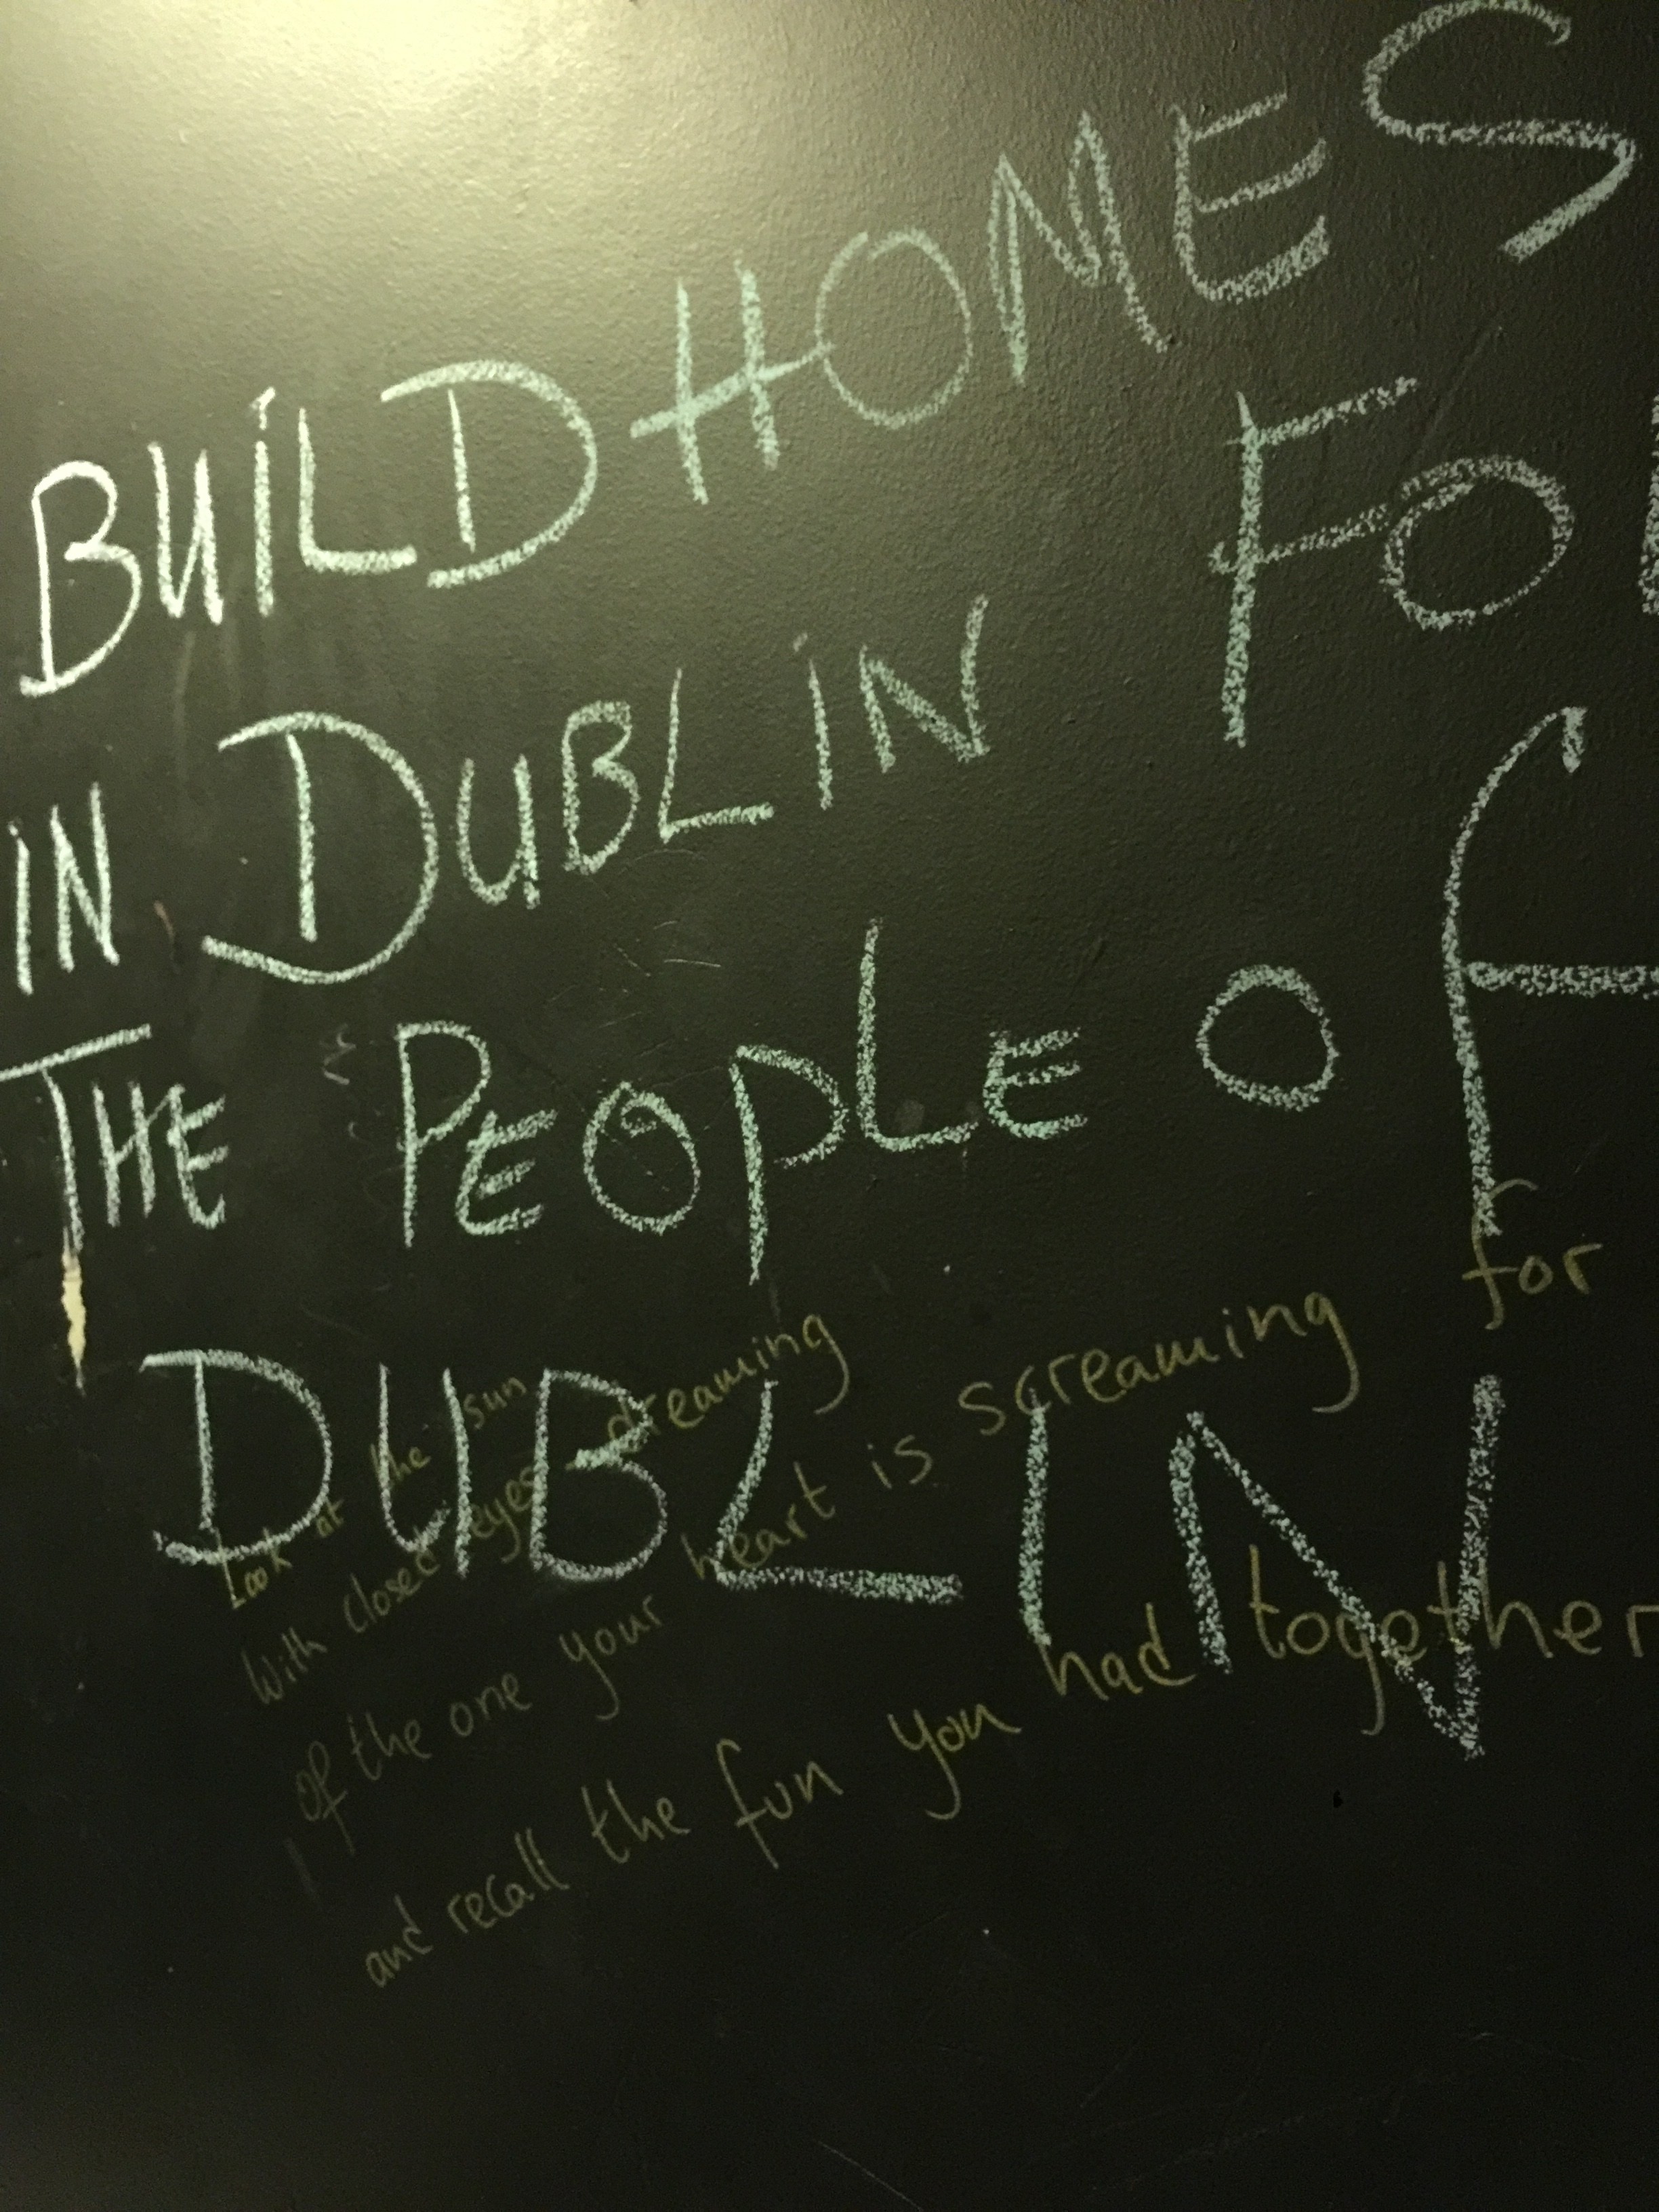 BUiLD HOMES
IN DUBLiN FOR
THE PEOPLE Of
DUBLIN
Look at the sun
With closed eyes - dreaming
of the one your heart is screaming for
and recall the fun you had together